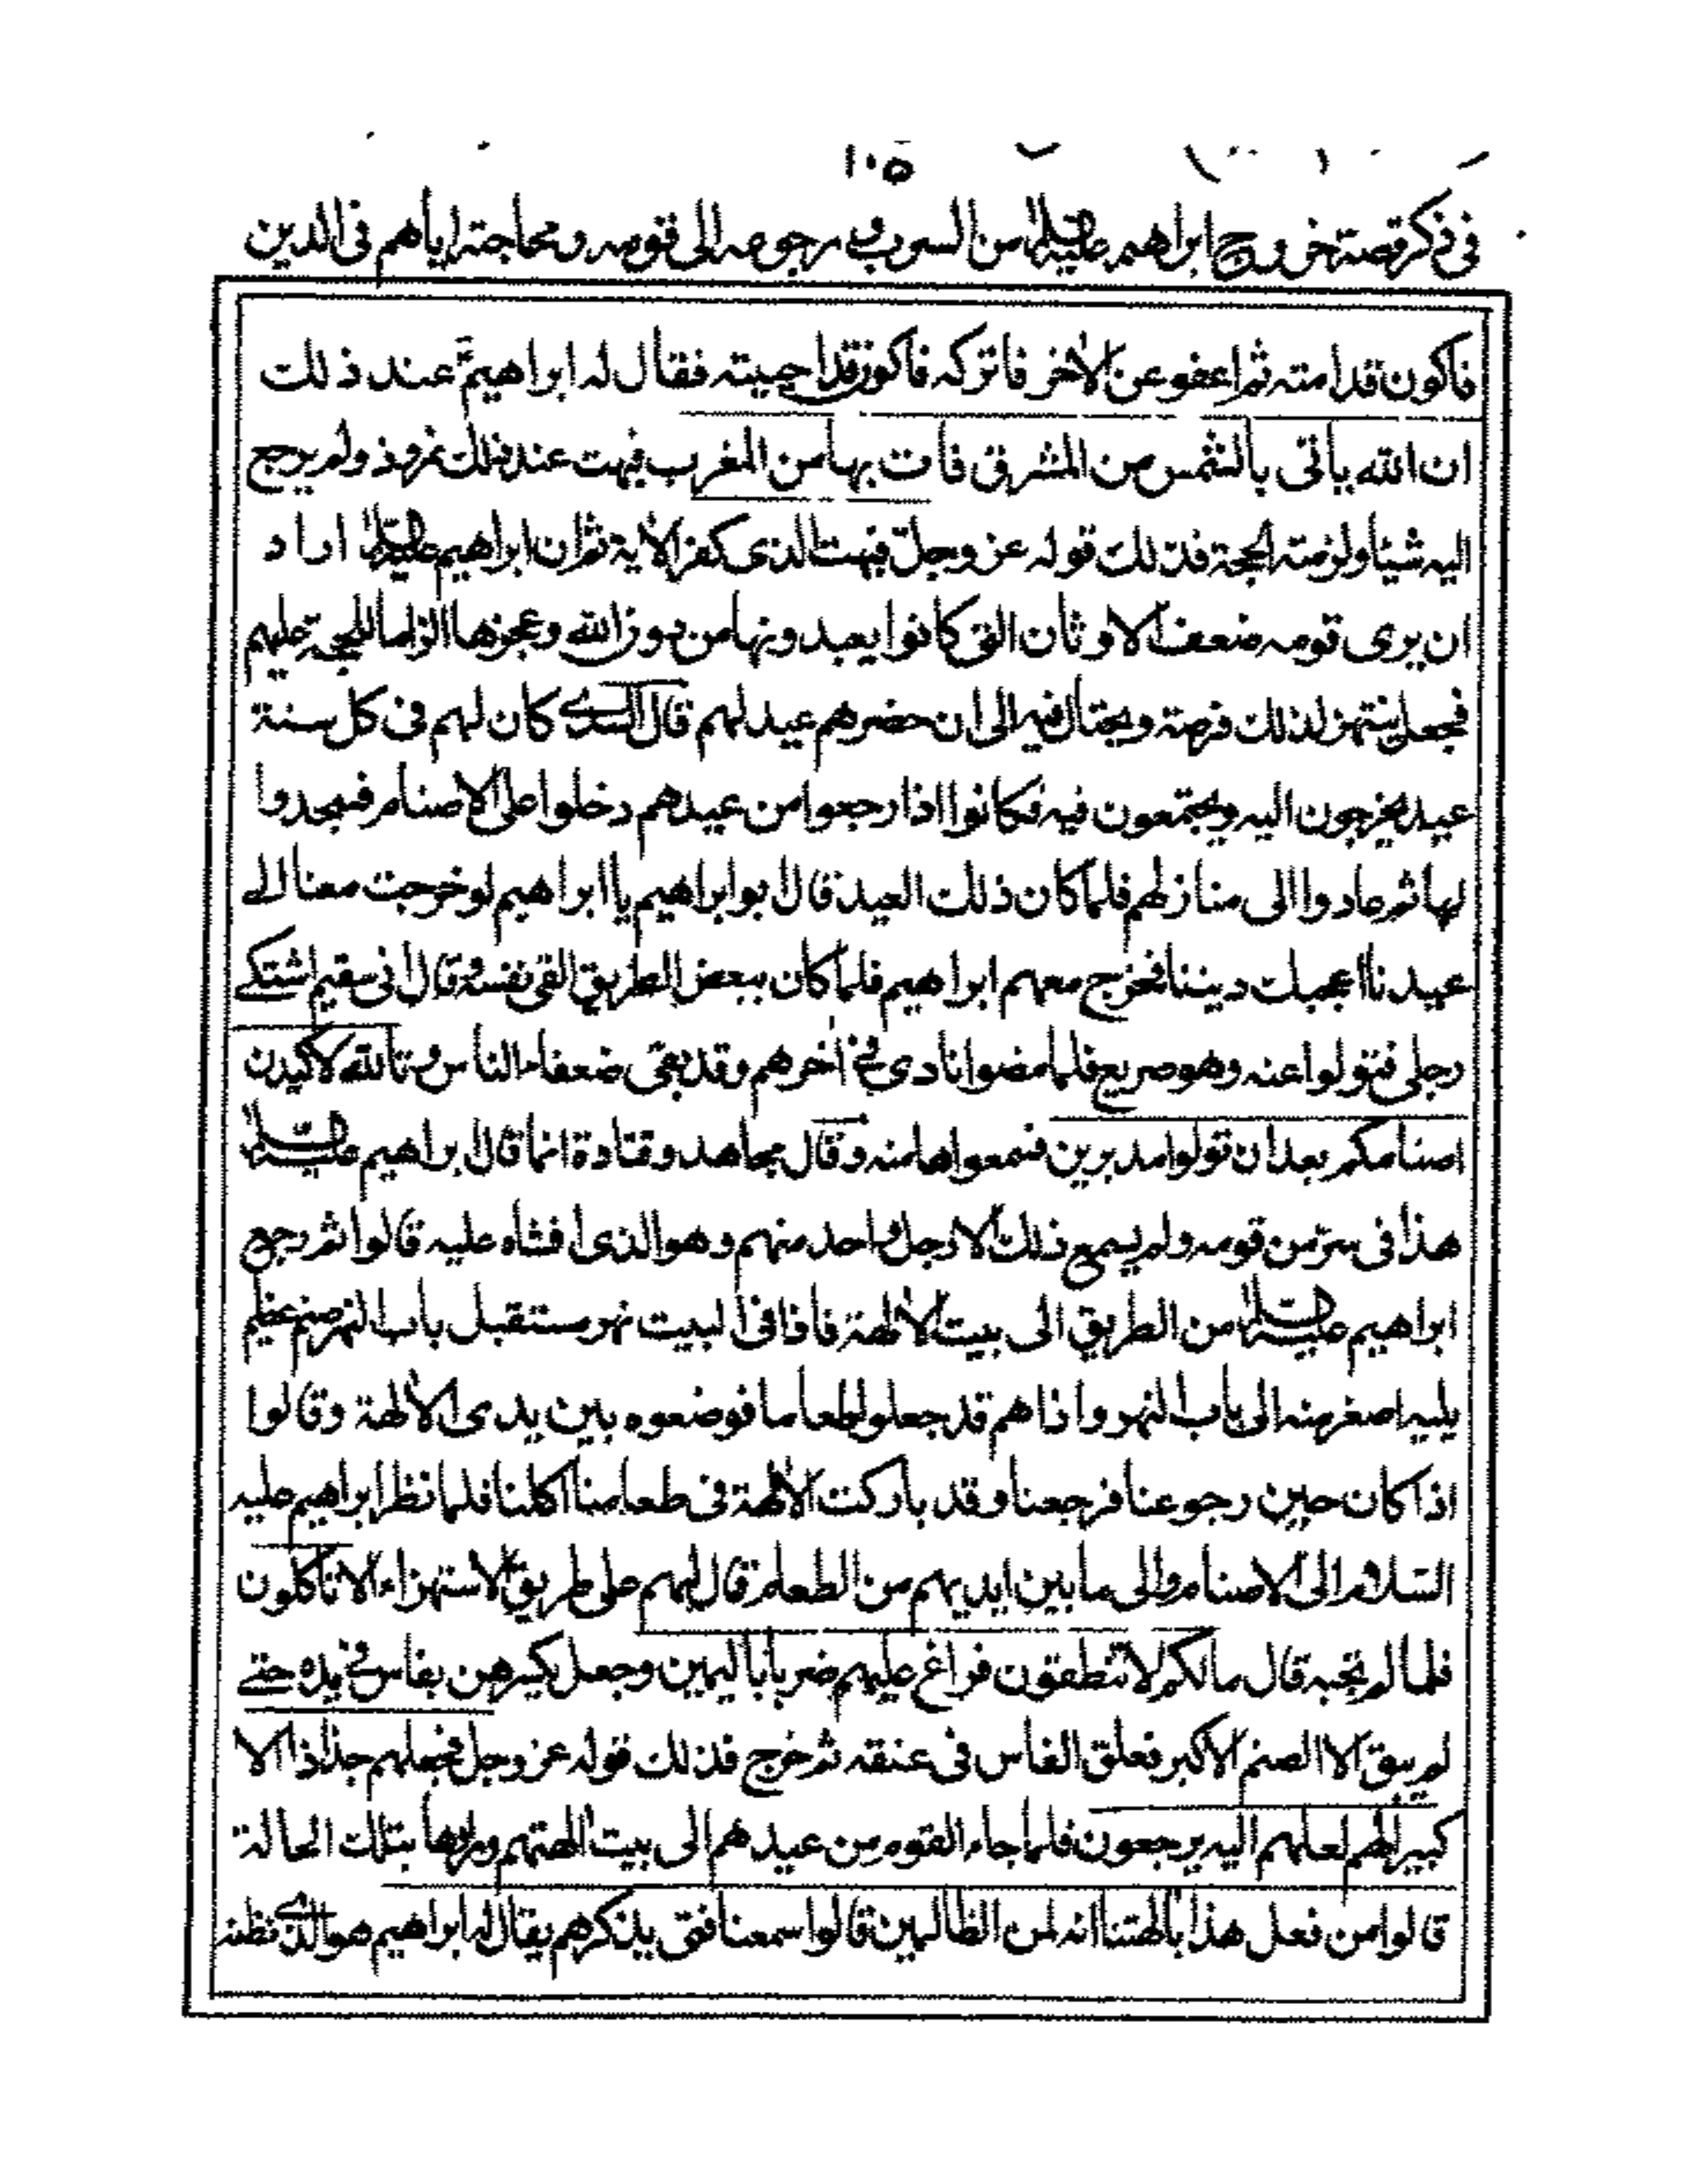 ١٠٥
فى ذكر قصة خروج ابراهيم عليه السلام من السرب و رجوعه الى قومه و محاجته اياهم فى الدين
فاكون قد امته ثم اعفو عن الاخر فاتركه فاكون قد احييته فقال له ابراهيمؑ عند ذلك
ان الله ياتى بالشمس من المشرق فات بها من المغرب فبهت عند ذلك نمروذ ولم يرجع
اليه شيئا ولزمته الحجة فذلك قوله عز وجل فبهت الذى كفر الاية ثم ان ابراهيم عليه السلام اراد
ان يرى قومه ضعف الاوثان التى كانوا يعبدونها من دون الله وعجزها الزاما للحجة عليهم
فجعل ينتهز لذلك فرصة ويحتال فيه الى ان حضرهم عيد لهم قال السدى كان لهم فى كل سنة
عيد يخرجون اليه ويجتمعون فيه فكانوا اذا رجعوا من عيدهم دخلوا على الاصنام فسجدوا
لها ثم عادوا الى منازلهم فلما كان ذلك العيد قال ابو ابراهيم يا ابراهيم لو خرجت معنا الى
عيدنا اعجبك ديننا فخرج معهم ابراهيم فلما كان ببعض الطريق القى نفسه وقال انى سقيم اشتكى
رجلى فتولوا عنه وهو صريع فلما مضوا نادى فى اخرهم وقد بقى ضعفاء الناس وتالله لاكيدن
اصنامكم بعد ان تولوا مدبرين فسمعوها منه وقال مجاهد وقتادة انما قال ابراهيم عليه السلام
هذا فى سر من قومه ولم يسمع ذلك الا رجل واحد منهم وهو الذى افشاه عليه قالوا ثم رجع
ابراهيم عليه السلام من الطريق الى بيت الالهة فاذا فى البيت نهر مستقبل باب النهر صنم عظيم
يليه اصغر منه الى باب النهر واذا هم قد جعلوا طعاما فوضعوه بين يدى الالهة وقالوا
اذا كان حين رجوعنا فرجعنا وقد باركت الالهة فى طعامنا اكلنا فلما نظر ابراهيم عليه
السلام الى الاصنام والى ما بين ايديهم من الطعام قال لهم على طريق الاستهزاء الا تاكلون
فلما لم تجبه قال مالكم لا تنطقون فراغ عليهم ضربا باليمين وجعل يكسرهن بفاس فى يده حتى
لم يبق الا الصنم الاكبر فعلق الفاس فى عنقه ثم خرج فذلك قوله عز وجل فجعلهم جذاذا الا
كبيرا لهم لعلهم اليه يرجعون فلما جاء القوم من عيدهم الى بيت الهتهم وراوها بتلك الحالة
قالوا من فعل هذا بالهتنا انه لمن الظالمين قالوا سمعنا فتى يذكرهم يقال له ابراهيم هو الذى نظنه